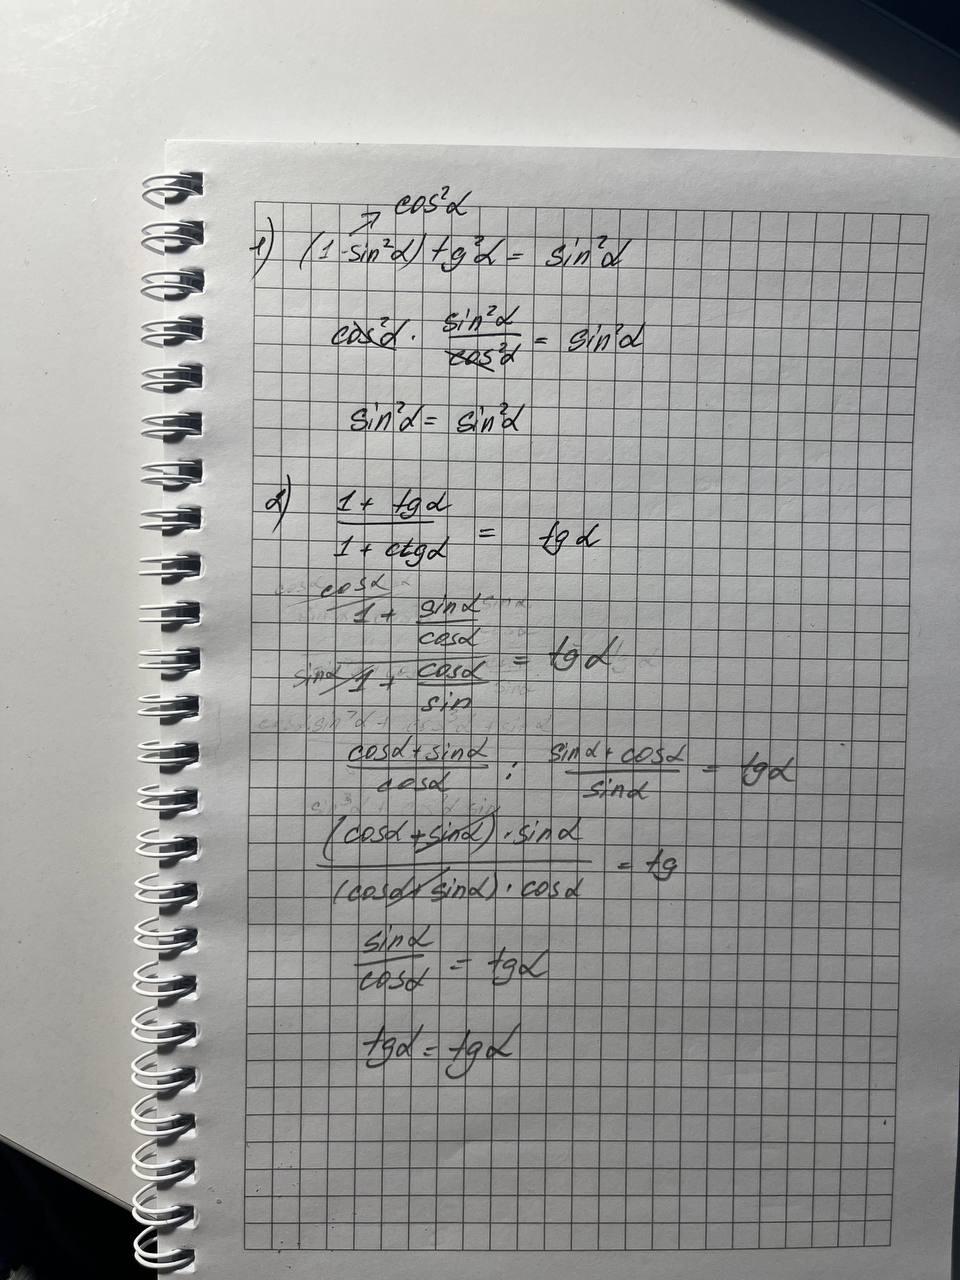 cos²α
1) (1-sin²α) tg²α = sin²α
cos²α · sin²α/cos²α = sin²α
sin²α = sin²α
2) (1 + tgα)/(1 + ctgα) = tgα
cosα
1 + sinα/cosα
sinα 1 + cosα/sin = tgα
(cosα + sinα)/cosα : (sinα + cosα)/sinα = tgα
(cosα + sinα) · sinα/(cosα + sinα) · cosα = tg
sinα/cosα = tgα
tgα = tgα